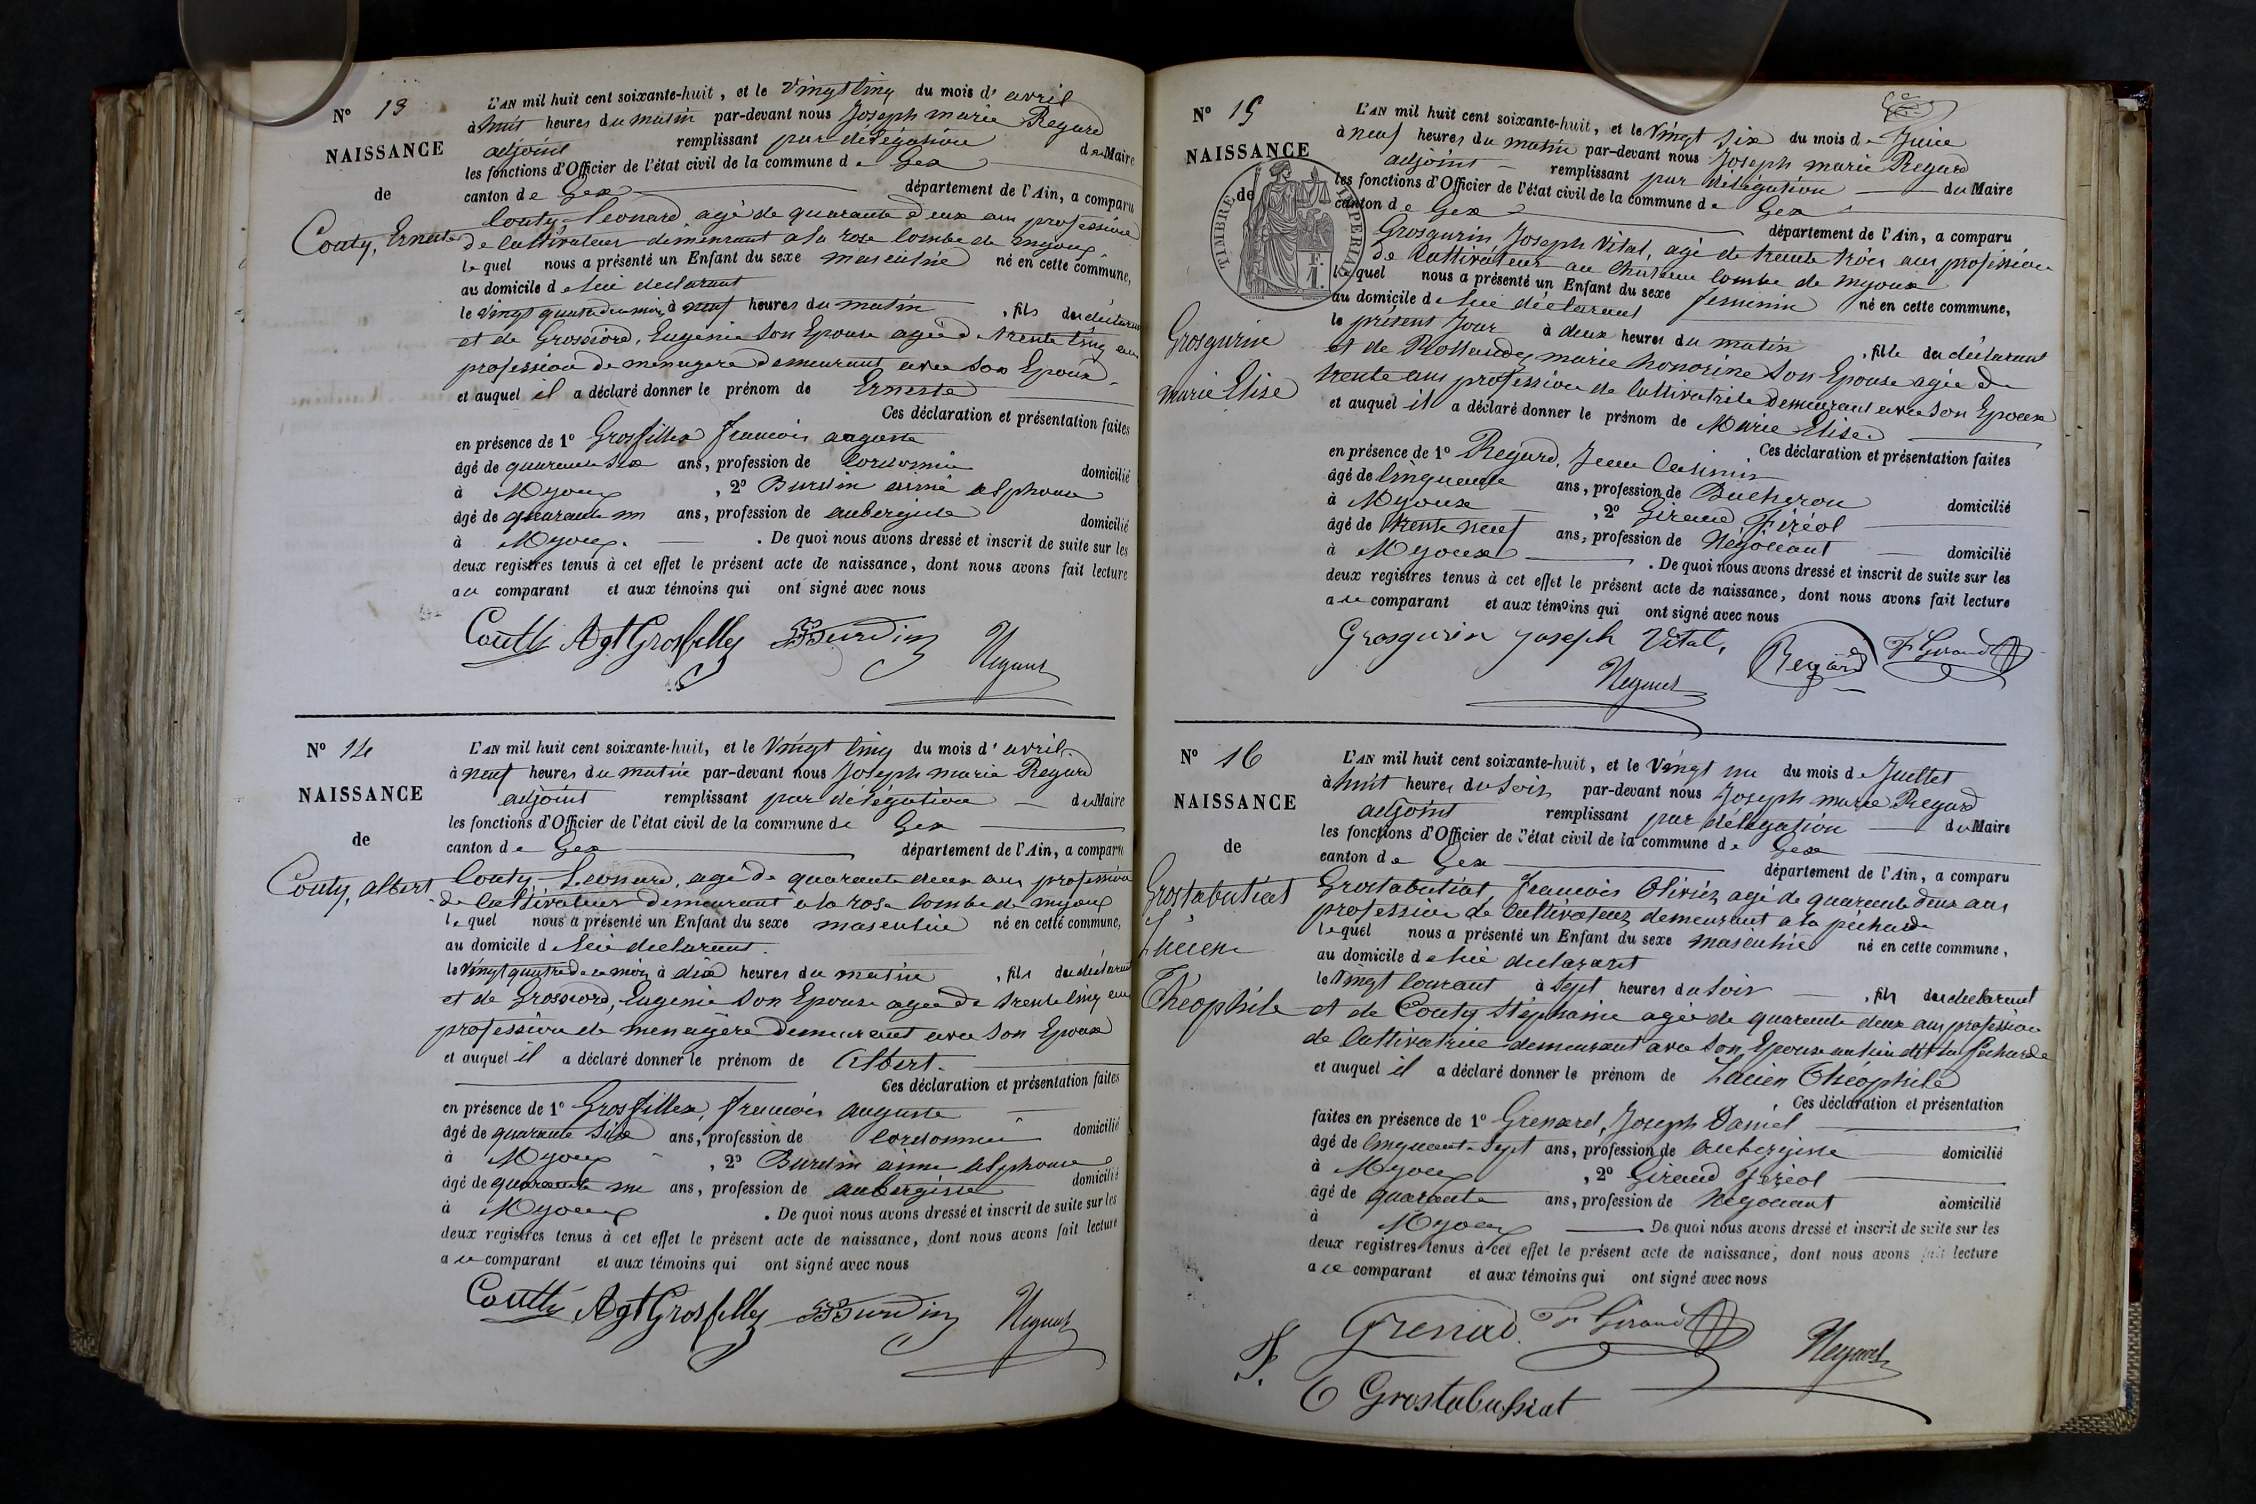 N° 13
NAISSANCE
de
Couty, Ernest
L'AN mil huit cent soixante-huit, et le vingt cinq du mois d' avril
à huit heures du matin par-devant nous Joseph marie Regard
adjoint remplissant par délégation du Maire
les fonctions d'Officier de l'état civil de la commune de Gex
canton de Gex département de l'Ain, a comparu
Couty Leonard agé de quarante deux ans profession
de Cultivateur demeurant a la rose Combe de myoux
lequel nous a présenté un Enfant du sexe masculin né en cette commune,
au domicile de lui declarant
le vingt quatre du mois à neuf heures du matin, fils du déclarant
et de Grossiord, Eugenie Son Epouse agée de trente cinq ans
profession de menagere demeurant avec Son Epoux
et auquel il a déclaré donner le prénom de Erneste
Ces déclaration et présentation faites
en présence de 1° Grosfillex françois auguste
âgé de quarante six ans, profession de Cordonnier domicilié
à Myoux, 2° Burdin aimé alphonse
âgé de quarante un ans, profession de aubergiste domicilié
à Myoux. . De quoi nous avons dressé et inscrit de suite sur les
deux registres tenus à cet effet le présent acte de naissance, dont nous avons fait lecture
au comparant et aux témoins qui ont signé avec nous
Coutty Agt Grosfilley Burdin Regard
N° 14
NAISSANCE
de
Couty, albert
L'AN mil huit cent soixante-huit, et le Vingt Cinq du mois d' avril
à neuf heures du matin par-devant nous Joseph marie Regard
adjoint remplissant par délégation du Maire
les fonctions d'Officier de l'état civil de la commune de Gex
canton de Gex département de l'Ain, a comparu
Couty Leonard, agé de quarante deux ans profession
de Cultivateur demeurant a la rose Combe de myoux
lequel nous a présenté un Enfant du sexe masculin né en cette commune,
au domicile de lui declarant
le Vingt quatre de ce mois à dix heures du matin, fils du déclarant
et de Grossiord, Eugenie Son Epouse agée de trente cinq ans
profession de menagère demeurant avec Son Epoux
et auquel il a déclaré donner le prénom de Albert.
Ces déclaration et présentation faites
en présence de 1° Grosfillex, françois auguste
âgé de quarante Six ans, profession de Cordonnier domicilié
à Myoux, 2° Burdin aimé alphonse
âgé de quarante un ans, profession de aubergiste domicilié
à Myoux . De quoi nous avons dressé et inscrit de suite sur les
deux registres tenus à cet effet le présent acte de naissance, dont nous avons fait lecture
au comparant et aux témoins qui ont signé avec nous
Coutty Agt Grosfilley Burdin Regard
N° 15
NAISSANCE
de
TIMBRE IMPERIAL
F.
1.
Grosgurin
marie Elise
L'AN mil huit cent soixante-huit, et le Vingt Six du mois de Juin
à neuf heures du matin par-devant nous Joseph marie Regard
adjoint remplissant par délégation du Maire
les fonctions d'Officier de l'état civil de la commune de Gex
canton de Gex département de l'Ain, a comparu
Grosgurin, Joseph Vital, agé de trente trois ans profession
de Cultivateur au Combe de myoux
lequel nous a présenté un Enfant du sexe feminin né en cette commune,
au domicile de lui déclarant
le présent Jour à deux heures du matin, fille du déclarant
et de marie honorine Son Epouse agée de
trente ans profession de Cultivatrice demeurant avec Son Epoux
et auquel il a déclaré donner le prénom de Marie Elise.
Ces déclaration et présentation faites
en présence de 1° Regard, Jean Casimir
âgé de Cinquante ans, profession de Bucheron domicilié
à Myoux, 2° Giraud, Firéol
âgé de trente neuf ans, profession de Négociant domicilié
à Myoux . De quoi nous avons dressé et inscrit de suite sur les
deux registres tenus à cet effet le présent acte de naissance, dont nous avons fait lecture
au comparant et aux témoins qui ont signé avec nous
Grosgurin Joseph Vital, Regard F Giraud
Regard
N° 16
NAISSANCE
de
Grostabussiat
Lucien
Théophile
L'AN mil huit cent soixante-huit, et le Vingt un du mois de Juillet
à huit heures du Soir par-devant nous Joseph marie Regard
adjoint remplissant par délégation du Maire
les fonctions d'Officier de l'état civil de la commune de Gex
canton de Gex département de l'Ain, a comparu
Grostabussiat, françois Olivier, agé de quarante deux ans
profession de Cultivateur demeurant a la pécharde
lequel nous a présenté un Enfant du sexe masculin né en cette commune,
au domicile de lui declarant
le Vingt Courant à Sept heures du Soir, fils du declarant
et de Couty Stéphanie agée de quarante deux ans profession
de Cultivatrice demeurant avec Son Epoux au lieu dit la pécharde
et auquel il a déclaré donner le prénom de Lucien Théophile
Ces déclaration et présentation
faites en présence de 1° Grenard, Joseph Daniel
âgé de Cinquante Sept ans, profession de Aubergiste domicilié
à Myoux, 2° Giraud Firéol
âgé de quarante ans, profession de Négociant domicilié
à Myoux De quoi nous avons dressé et inscrit de suite sur les
deux registres tenus à cet effet le présent acte de naissance, dont nous avons fait lecture
au comparant et aux témoins qui ont signé avec nous
Grenard. F Giraud Regard
O Grostabussiat